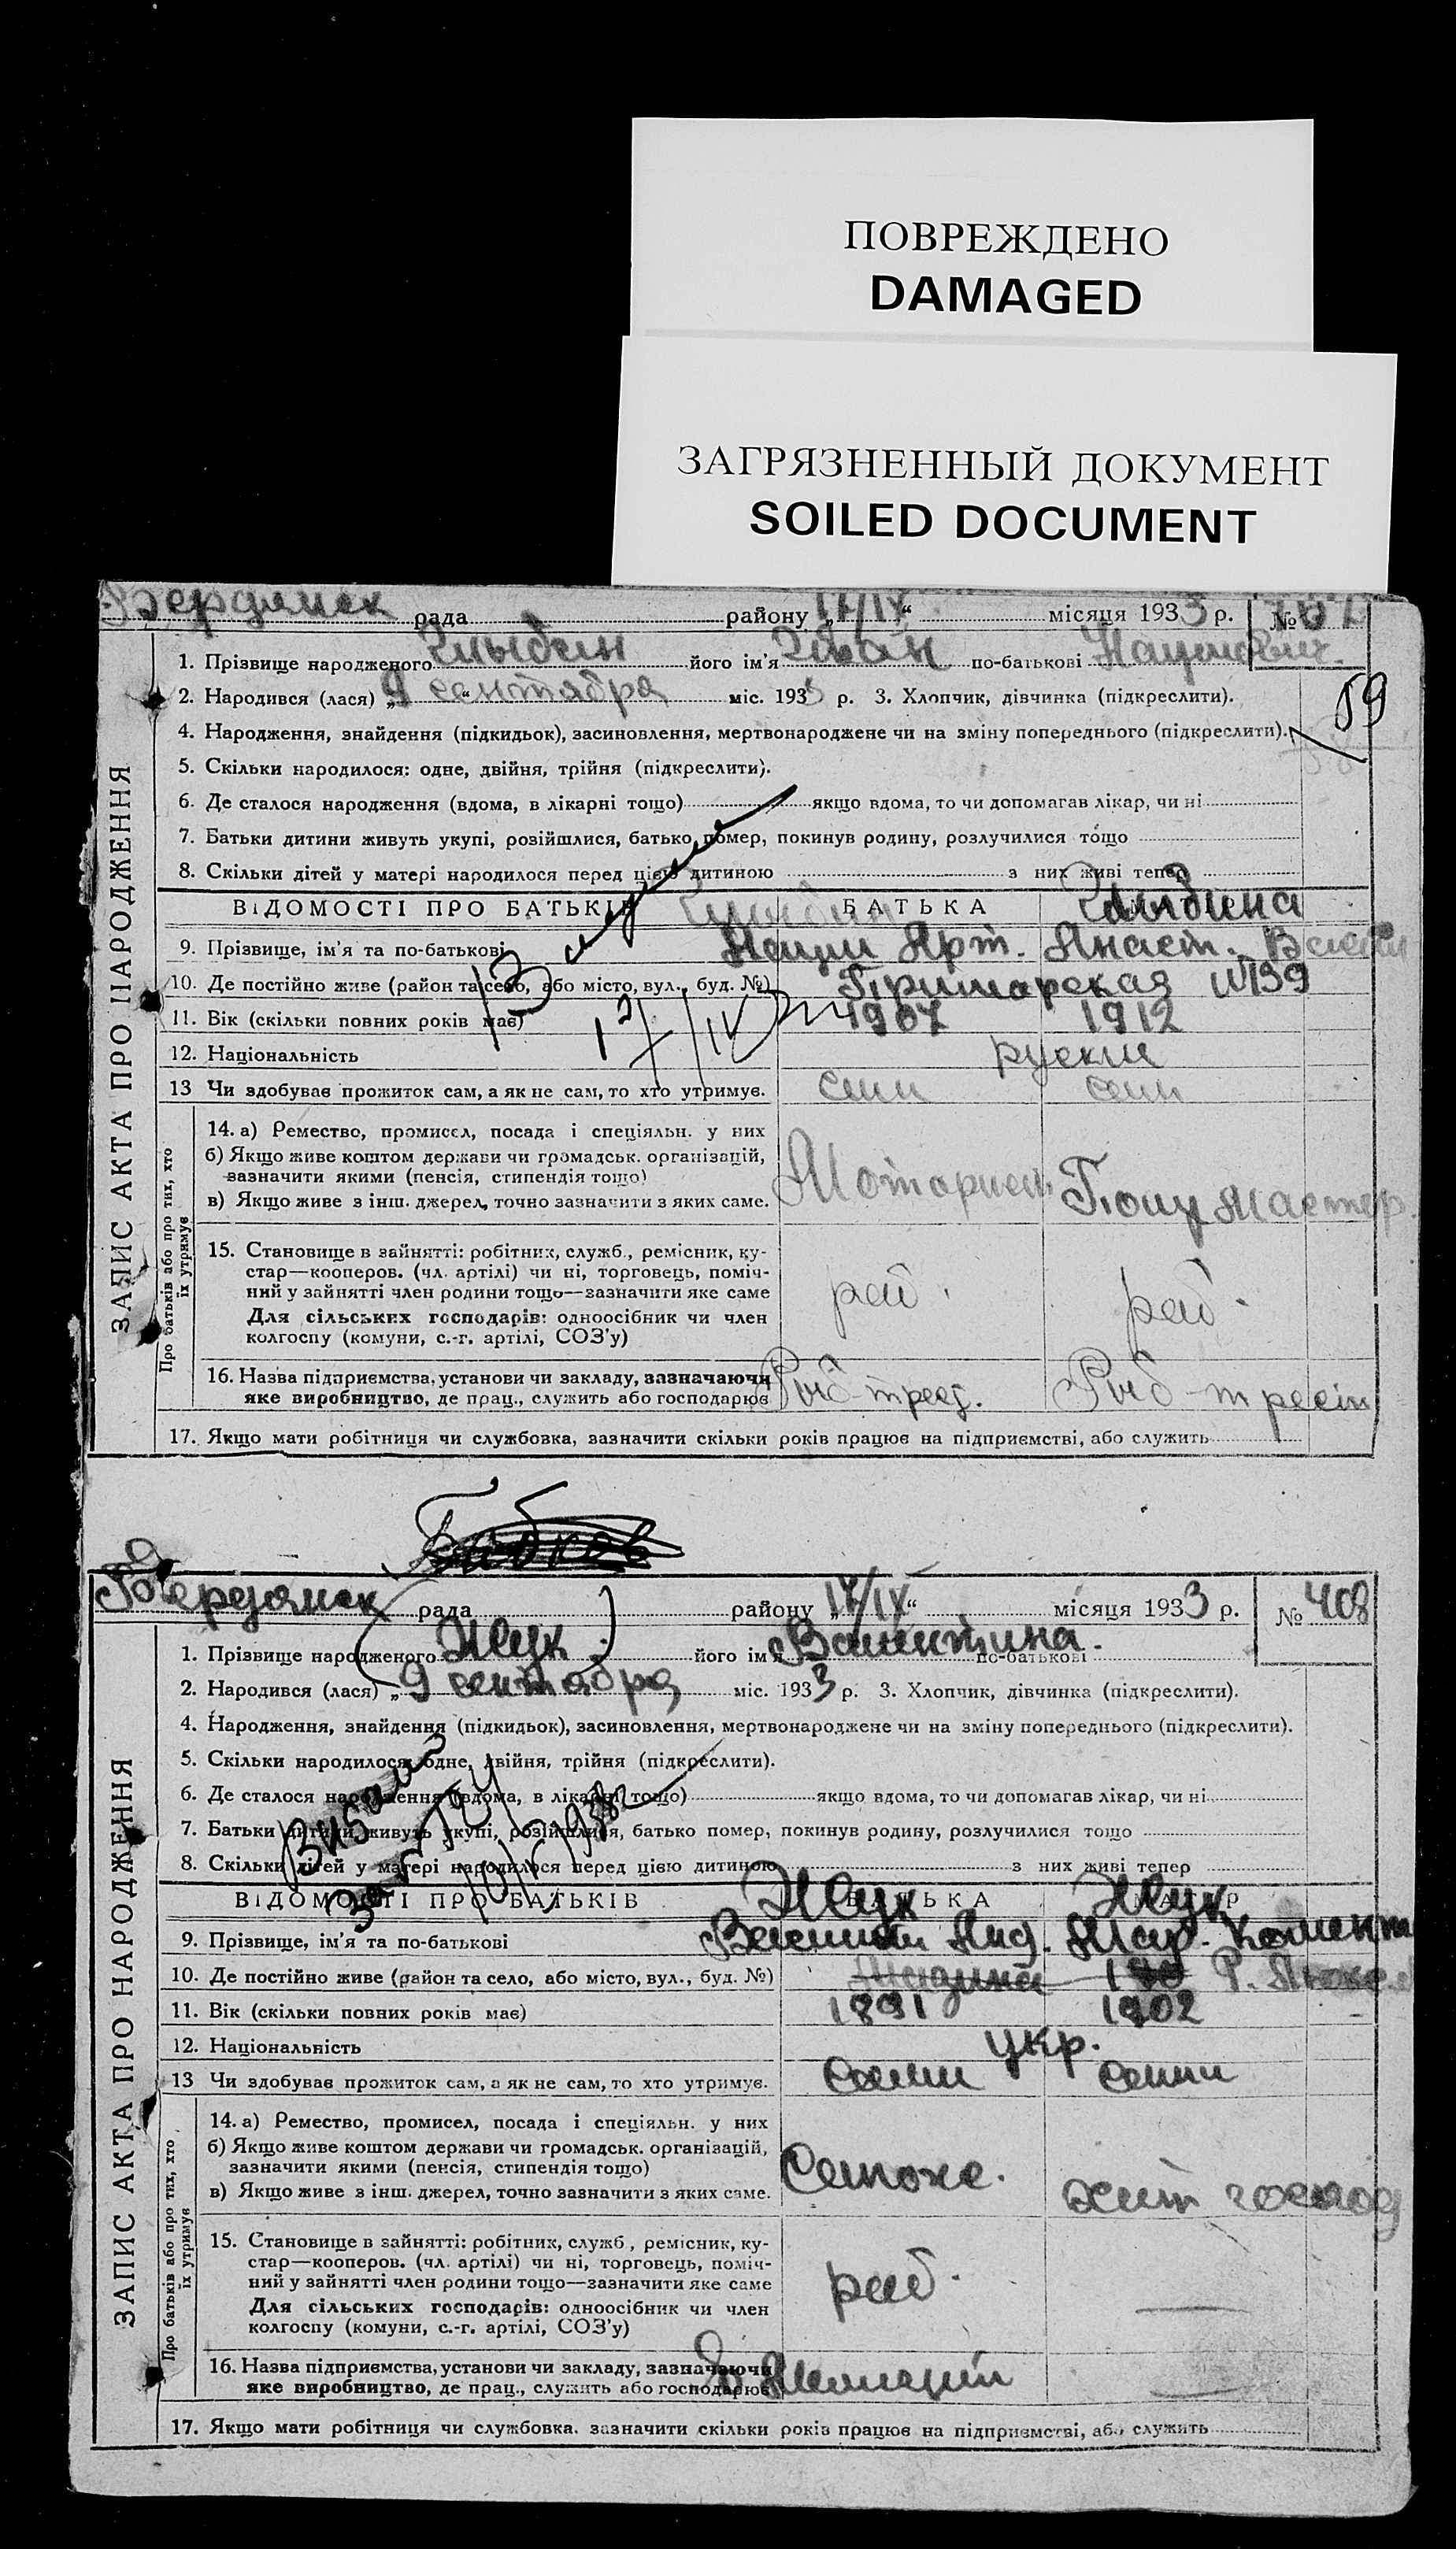 ПОВРЕЖДЕНО
DAMAGED
ЗАГРЯЗНЕННЫЙ ДОКУМЕНТ
SOILED DOCUMENT
Бердянск рада району „17/IX“ місяця 1933 р. №
1. Прізвище народженого його ім'я по-батькові
2. Народився (лася) „9 сентября міс. 1933 р. 3. Хлопчик, дівчинка (підкреслити).
59
4. Народження, знайдення (підкидьок), засиновлення, мертвонароджене чи на зміну попереднього (підкреслити).
5. Скільки народилося: одне, двійня, трійня (підкреслити).
6. Де сталося народження (вдома, в лікарні тощо) якщо вдома, то чи допомагав лікар, чи ні
7. Батьки дитини живуть укупі, розійшлися, батько помер, покинув родину, розлучилися тощо
8. Скільки дітей у матері народилося перед цією дитиною з них живі тепер
ЗАПИС АКТА ПРО НАРОДЖЕННЯ
ВІДОМОСТІ ПРО БАТЬКІВ БАТЬКА
9. Прізвище, ім'я та по-батькові Арт. Анаст.
10. Де постійно живе (район та село, або місто, вул., буд. №) Приморская №139
11. Вік (скільки повних років має) 1907 1912
12. Національність руские
13 Чи здобував прожиток сам, а як не сам, то хто утримує. сам сам
Про батьків або про тих, хто їх утримує
14. а) Ремество, промисел, посада і спеціяльн. у них
б) Якщо живе коштом держави чи громадськ. організацій,
зазначити якими (пенсія, стипендія тощо)
в) Якщо живе з інш. джерел, точно зазначити з яких саме.
Моторист
15. Становище в зайнятті: робітник, служб., ремісник, ку-
стар—кооперов. (чл. артілі) чи ні, торговець, поміч-
ний у зайнятті член родини тощо—зазначити яке саме
Для сільських господарів: одноосібник чи член
колгоспу (комуни, с.-г. артілі, СОЗ'у)
раб. раб.
16. Назва підприємства, установи чи закладу, зазначаючи
яке виробництво, де прац., служить або господарює
Рыб-трест. Рыб-трест
17. Якщо мати робітниця чи службовка, зазначити скільки років працює на підприємстві, або служить
Бердянск рада району „17/IX“ місяця 1933 р. № 408
1. Прізвище народженого (Жук.) його ім'я Валентина. по-батькові
2. Народився (лася) „9 сентября міс. 1933 р. 3. Хлопчик, дівчинка (підкреслити).
4. Народження, знайдення (підкидьок), засиновлення, мертвонароджене чи на зміну попереднього (підкреслити).
5. Скільки народилося: одне, двійня, трійня (підкреслити).
6. Де сталося народження (вдома, в лікарні тощо) якщо вдома, то чи допомагав лікар, чи ні
7. Батьки дитини живуть укупі, розійшлися, батько помер, покинув родину, розлучилися тощо
8. Скільки дітей у матері народилося перед цією дитиною з них живі тепер
ЗАПИС АКТА ПРО НАРОДЖЕННЯ
ВІДОМОСТІ ПРО БАТЬКІВ БАТЬКА Жук Жук
9. Прізвище, ім'я та по-батькові Анд. Мар.
10. Де постійно живе (район та село, або місто, вул., буд. №)
11. Вік (скільки повних років має) 1891 1902
12. Національність укр.
13 Чи здобував прожиток сам, а як не сам, то хто утримує. Сами сами
Про батьків або про тих, хто їх утримує
14. а) Ремество, промисел, посада і спеціяльн. у них
б) Якщо живе коштом держави чи громадськ. організацій,
зазначити якими (пенсія, стипендія тощо)
в) Якщо живе з інш. джерел, точно зазначити з яких саме.
Сапожн.
15. Становище в зайнятті: робітник, служб., ремісник, ку-
стар—кооперов. (чл. артілі) чи ні, торговець, поміч-
ний у зайнятті член родини тощо—зазначити яке саме
Для сільських господарів: одноосібник чи член
колгоспу (комуни, с.-г. артілі, СОЗ'у)
раб.
16. Назва підприємства, установи чи закладу, зазначаючи
яке виробництво, де прац., служить або господарює
17. Якщо мати робітниця чи службовка, зазначити скільки років працює на підприємстві, або служить